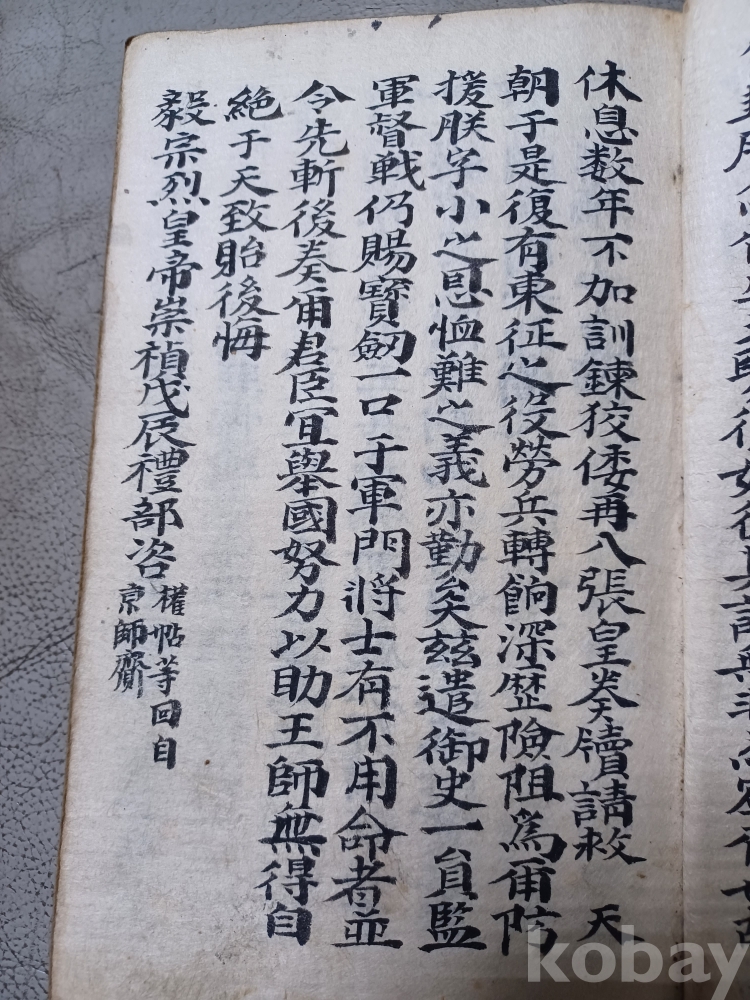 休息数年不加訓鍊狡倭再入張皇奏牘請救 天
朝于是復有東征之役勞兵轉餉深歷險阻爲爾防
援朕字小之恩恤難之義亦勤矣玆遣御史一員監
軍督戰仍賜寶劒一口于軍門將士有不用命者並
令先斬後奏爾君臣宜舉國努力以助王師無得自
絶于天致貽後悔
毅宗烈皇帝崇禎戊辰禮部咨
權帖等回自
京師齎
kobay